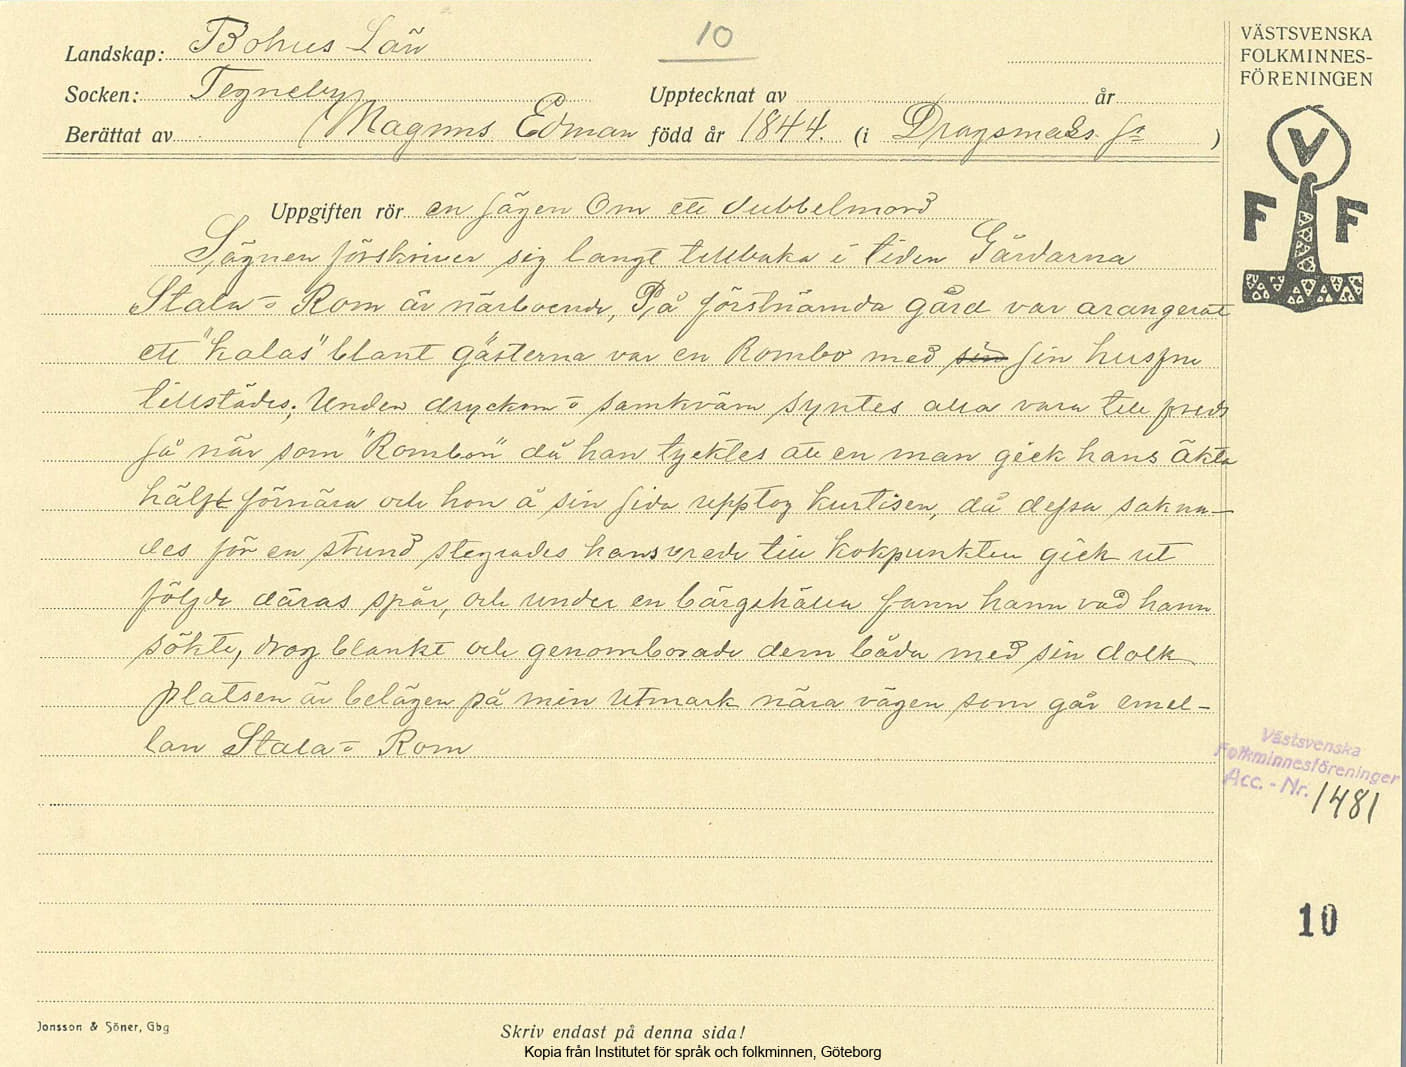 10
VÄSTSVENSKA
FOLKMINNES-
FÖRENINGEN
Landskap: Bohus Län
Socken: Tegneby Upptecknat av år
Berättat av Magnus Edman född år 1844. (i Dragsmarks sn )
V
F F
Uppgiften rör en sägen Om ett dubbelmord
Sägnen förskriver sig langt tillbaka i tiden Gårdarna
Stala - o Rom är närboende, På förstnämda gård var arangerat
ett "kalas" blant gästerna var en Rombo med sin sin husfru
tillstädes; Under dryckom - o samkväm syntes alla vara till freds
så när som "Rombon" då han tycktes att en man gick hans äkta
hälft förnära och hon å sin sida upptog kurtisen, då dessa sakna-
des för en stund stegrades hans vrede till kokpunkten gick ut
följde däras spår, och under en bärgshälla fann hann vad hann
sökte, drog blankt och genomborade dem båda med sin dolk
platsen är belägen på min utmark nära vägen som går emel-
lan Stala - o Rom
Västsvenska
Folkminnesföreninger
Acc. - Nr. 1481
10
Jonsson & Söner, Gbg
Skriv endast på denna sida!
Kopia från Institutet för språk och folkminnen, Göteborg